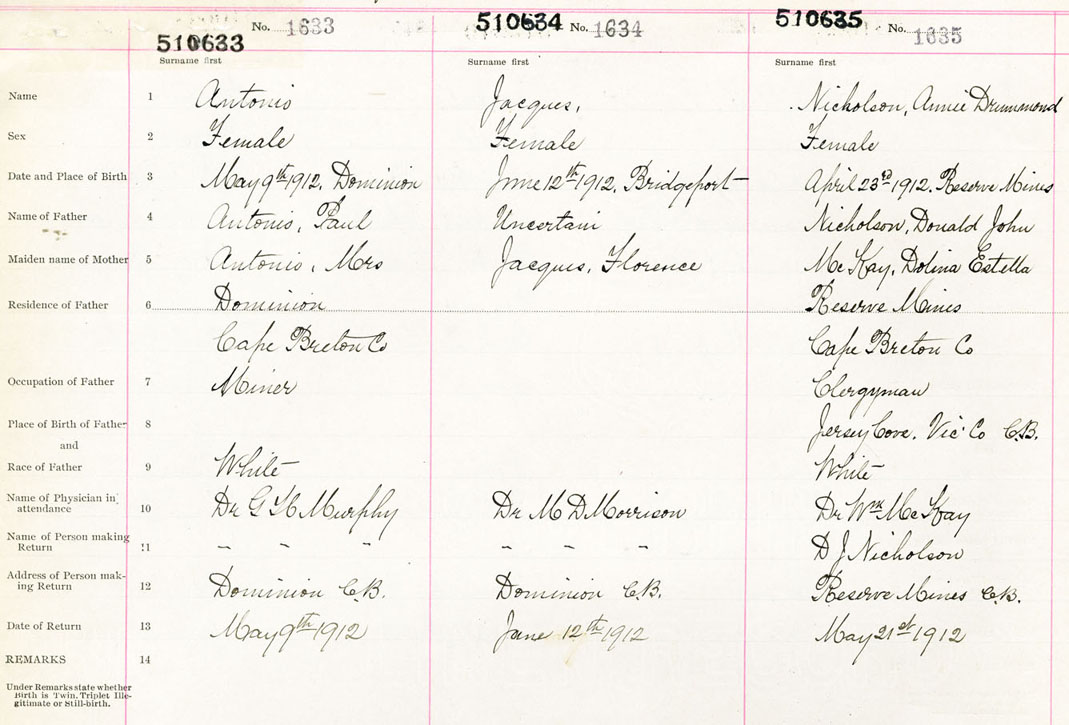 No. 1633 510634 No. 1634 510635 No. 1635
510633
Surname first Surname first Surname first
Name 1 Antonio Jacques, Nicholson, Annie Drummond
Sex 2 Female Female Female
Date and Place of Birth 3 May 9th 1912, Dominion June 12th 1912, Bridgeport April 23rd 1912. Reserve Mines
Name of Father 4 Antonio, Paul Uncertain Nicholson, Donald John
Maiden name of Mother 5 Antonio, Mrs Jacques, Florence McKay, Dolina Estella
Residence of Father 6 Dominion Reserve Mines
Cape Breton Co Cape Breton Co
Occupation of Father 7 Miner Clergyman
Place of Birth of Father 8 Jersey Cove. Vic. Co C.B.
and
Race of Father 9 White White
Name of Physician in
attendance 10 Dr G H Murphy Dr M D Morrison Dr Wm McKay
Name of Person making
Return 11 - - - - - - D J Nicholson
Address of Person mak-
ing Return 12 Dominion C.B. Dominion C.B. Reserve Mines C.B.
Date of Return 13 May 9th 1912 June 12th 1912 May 21st 1912
REMARKS 14
Under Remarks state whether
Birth is Twin, Triplet Ille-
gitimate or Still-birth.